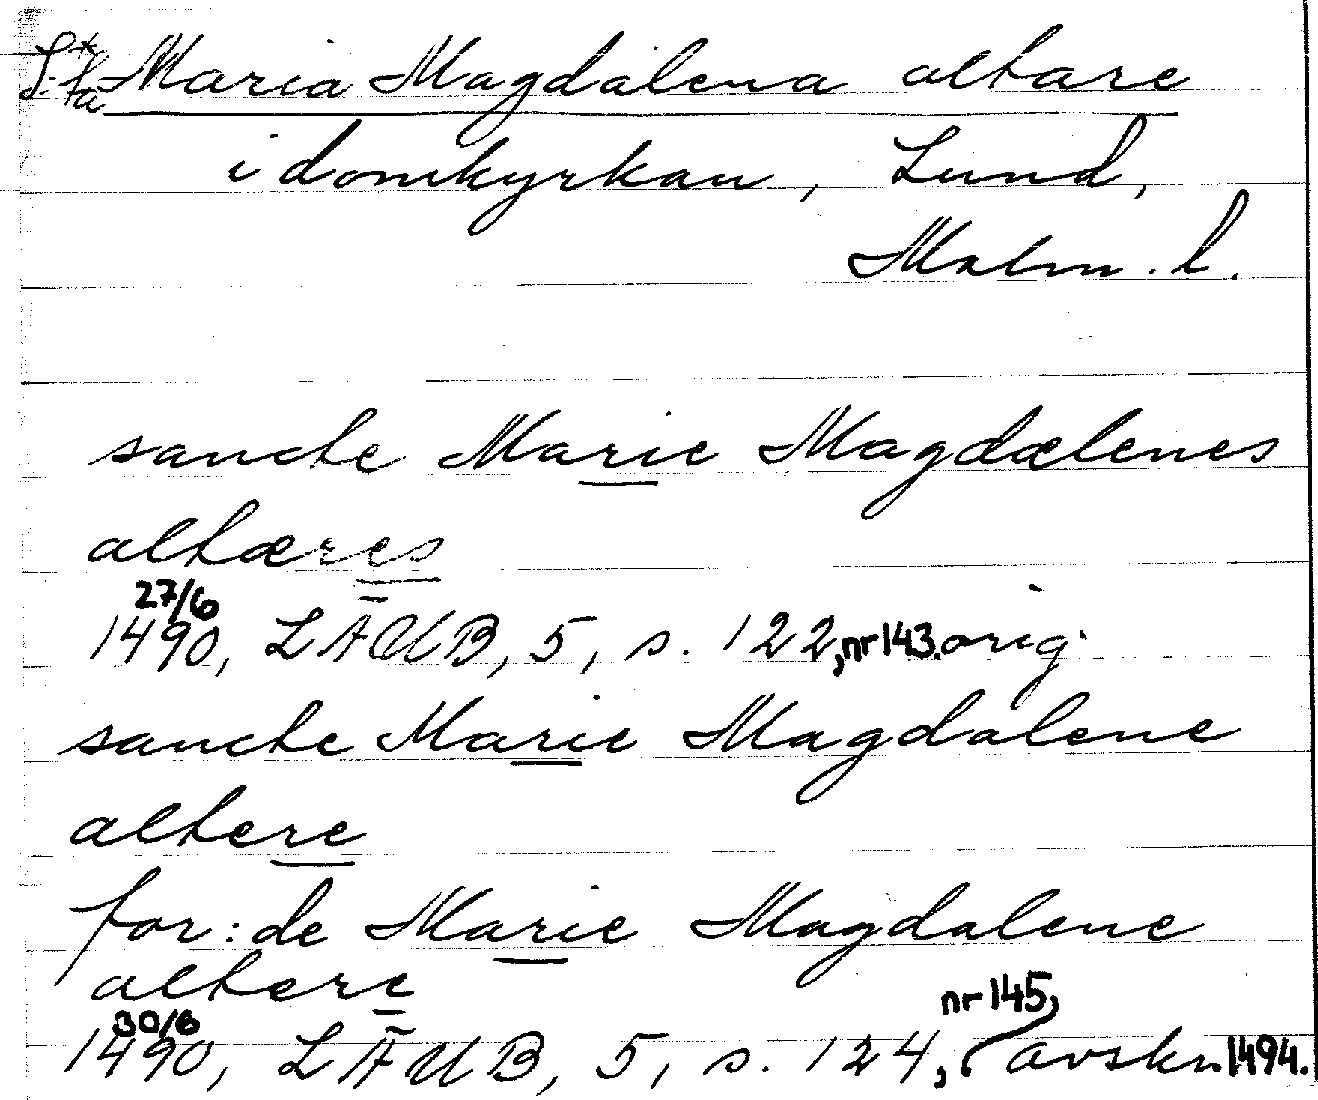 S:ta Maria Magdalena altare
i domkyrkan, Lund,
Malm. l.
sancte Marie Magdælenes
altæres
27/6
1490, LÄUB, 5, s. 122, nr 143. orig.
sancte Marie Magdalene
altere
for: de Marie Magdalene
altere
30/6
nr 145,
1490, LÄUB, 5, s. 124, avskr. 1494.